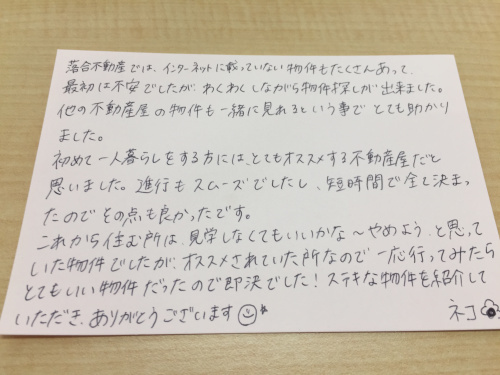 落合不動産では、インターネットに載っていない物件もたくさんあって、
最初は不安でしたが、わくわくしながら物件探しが出来ました。
他の不動産屋の物件も一緒に見れるという事でとても助かり
ました。
初めて一人暮らしをする方には、とてもオススメする不動産屋だと
思いました。進行もスムーズでしたし、短時間で全て決まっ
たのでその点も良かったです。
これから住む所は、見学しなくてもいいかな～やめよう、と思って
いた物件でしたが、オススメされていた所なので一応行ってみたら
とてもいい物件だったので即決でした!ステキな物件を紹介して
いただき、ありがとうございます
ネコ